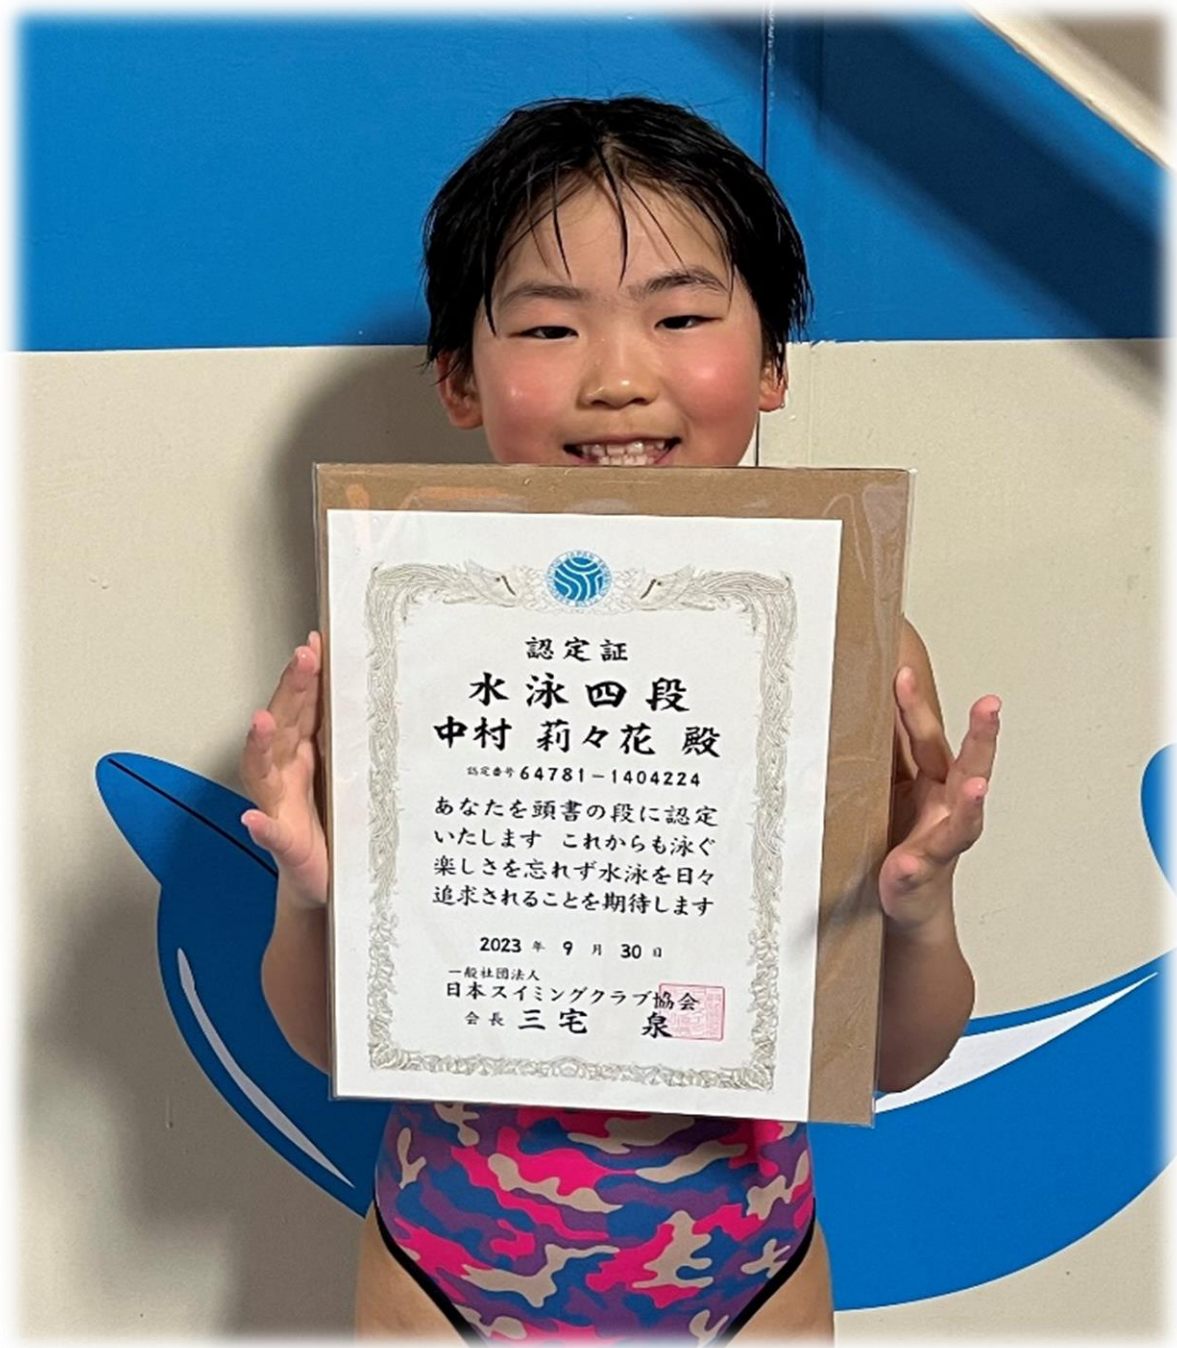 認定証
水泳四段
中村 莉々花 殿
認定番号 64781－1404224
あなたを頭書の段に認定
いたします これからも泳ぐ
楽しさを忘れず水泳を日々
追求されることを期待します
2023 年 9 月 30 日
一般社団法人
日本スイミングクラブ協会
会長 三宅 泉